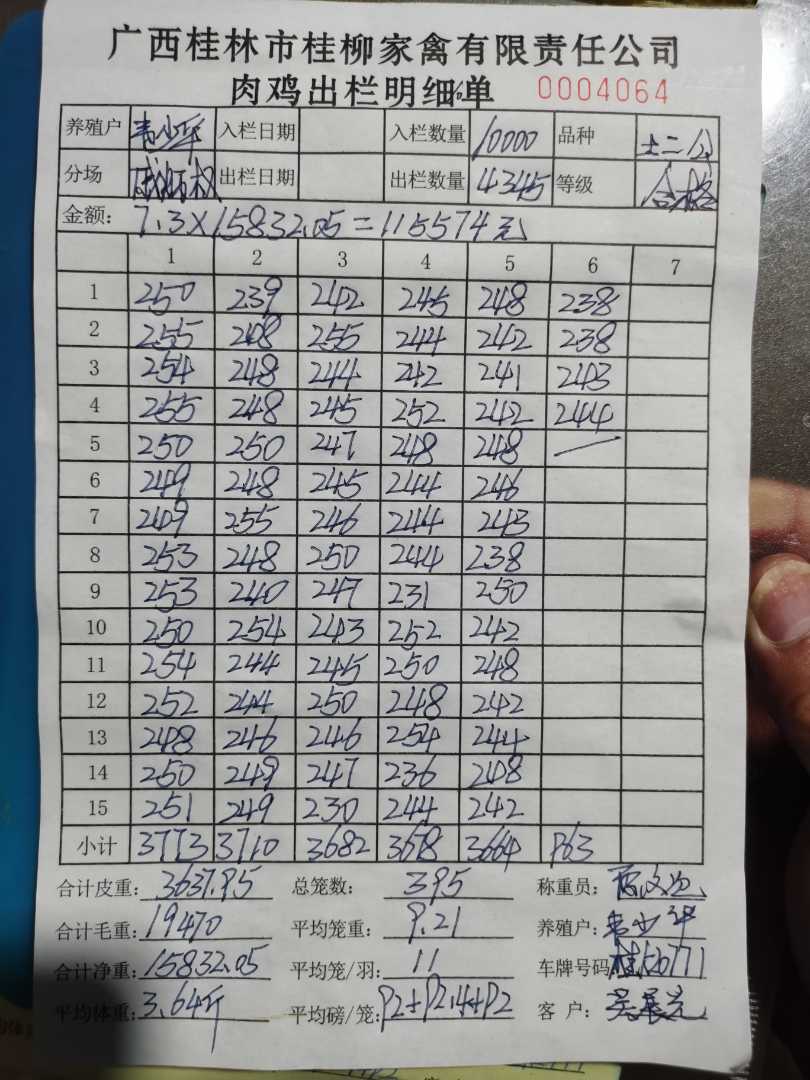 广西桂林市桂柳家禽有限责任公司
肉鸡出栏明细单 0004064
养殖户 韦少华 入栏日期 入栏数量 10000 品种 土二公
分场 出栏日期 出栏数量 4345 等级 合格
金额: 7.3×15832.05=115574元
1 2 3 4 5 6 7
1 250 239 242 245 248 238
2 255 248 255 244 242 238
3 254 248 244 242 241 243
4 255 248 245 252 242 244
5 250 250 247 248 248 —
6 249 248 245 244 246
7 249 255 246 244 243
8 253 248 250 244 238
9 253 240 247 231 250
10 250 254 243 252 242
11 254 244 245 250 248
12 252 244 250 248 242
13 248 246 246 254 244
14 250 249 247 236 248
15 251 249 230 244 242
小计 3773 3710 3682 3678 3664 963
合计皮重: 3637.95 总笼数: 395 称重员:
合计毛重: 19470 平均笼重: 9.21 养殖户: 韦少华
合计净重: 15832.05 平均笼/羽: 11 车牌号码
平均体重: 3.64斤 平均磅/笼: 客 户: 吴展光